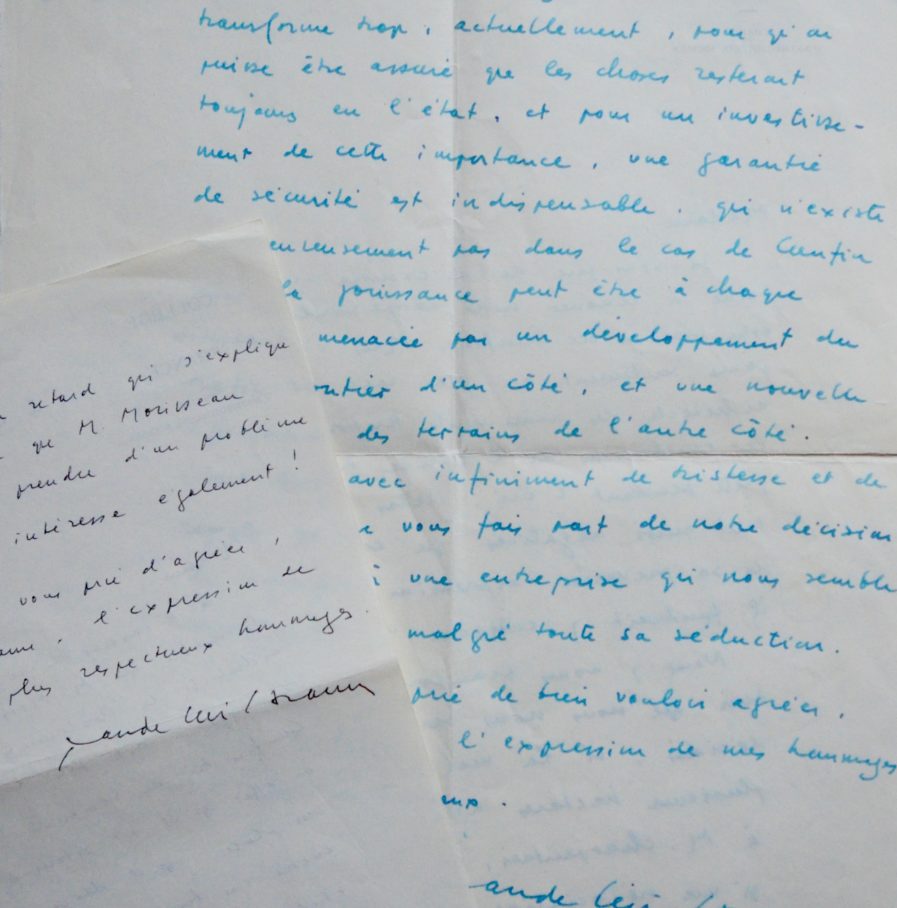 transforme trop, actuellement, pour qu'on
puisse être assuré que les choses resteront
toujours en l'état, et pour un investisse-
ment de cette importance, une garantie
de sécurité est indispensable, qui n'existe
pas dans le cas de
la jouissance peut être à chaque
menacée par un développement du
d'un côté, et une nouvelle
des terrains de l'autre côté.
avec infiniment de tristesse et de
vous fais part de notre décision
une entreprise qui nous semble
malgré toute sa séduction.
prie de bien vouloir agréer,
l'expression de mes hommages
retard qui s'explique
que M. Morisseau
prendre d'un problème
intéresse également !
vous prie d'agréer,
l'expression de
plus respectueux hommages.